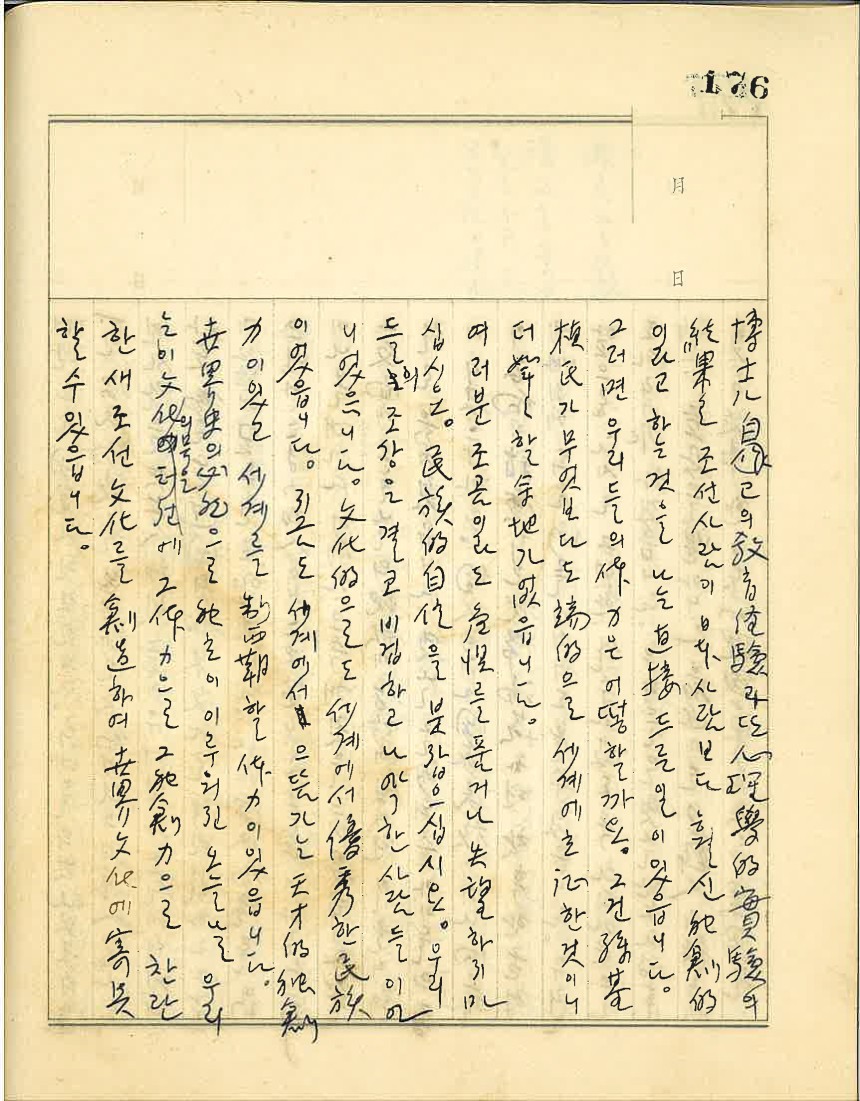 176
月
日
博士가 自己의 敎育經驗과 또 心理學的 實驗의
結果로 조선사람이 日本사람보다 훨신 獨創的
이라고 하는 것을 나는 直接 드른 일이 있읍니다.
그러면 우리들의 体力은 어떵할까요. 그건 孫基
禎氏가 무엇보다도 端的으로 세계에 立証한 것이니
더 할 余地가 없읍니다.
여러분 조곰이라도 危惧를 품거나 失望하지 마
십시요. 民族的 自信을 붓잡으십시요. 우리
들의 조상은 결코 비겁하고 나약한 사람들이 아
니였읍니다. 文化的으로도 세계에서 優秀한 民族
이였읍니다. 지금도 세계에서 으뜸가는 天才的 獨創
力이 있고 세계를 制覇할 体力이 있읍니다.
世界史의 必然으로 独立이 이루워진 오늘날 우리
는 이 文化의 터전에 그 体力으로 그 独創力으로 찬란
한 새 조선文化를 創造하여 世界文化에 寄与
할 수 있읍니다.